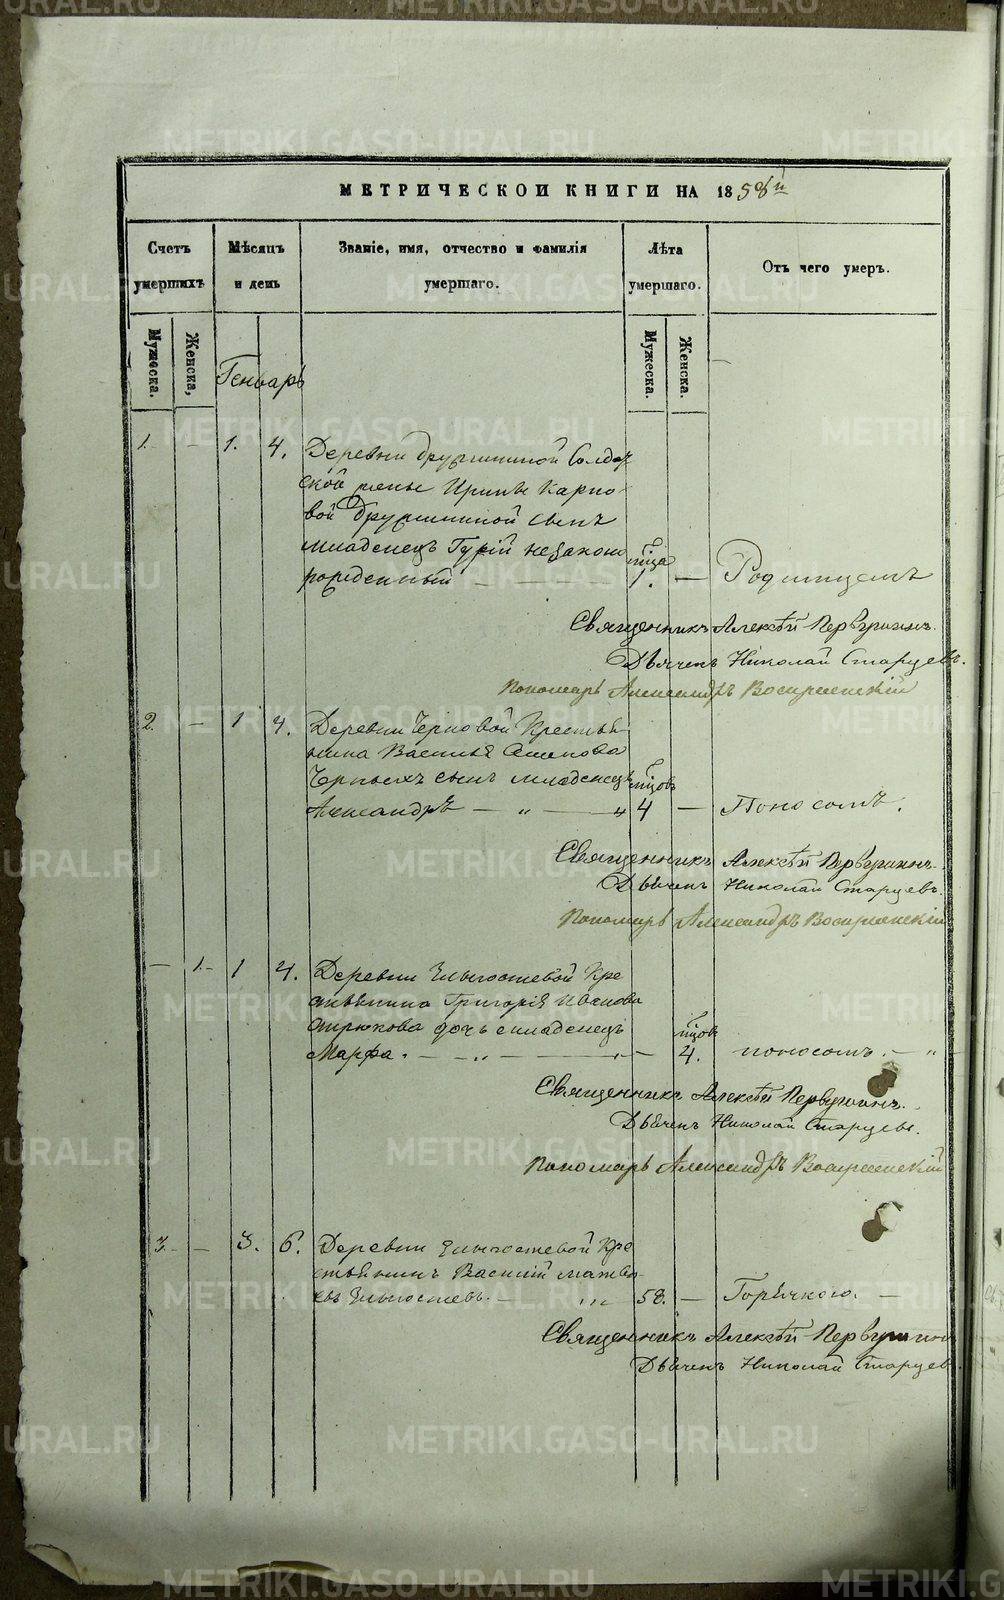 МЕТРИЧЕСКОЙ КНИГИ НА 1858й
Счетъ умершихъ
Мѣсяцъ и день
Званіе, имя, отчество и фамилія умершаго.
Лѣта умершаго.
Отъ чего умеръ.
Мужеска.
Женска,
Мужеска.
Женска.
Генварь
1. — 1. 4. Деревни Дружининой Солдат
ской жены Ирины Карпо
вой Дружининой сынъ
младенецъ Гурій незаконно
рожденный — мца 1. — Родимцемъ
Священникъ Алексѣй Первушинъ.
Дьячекъ Николай Старцевъ.
Пономарь Александръ Воскресенскій
2. — 1 4. Деревни Черновой Крестья
нина Василья Семенова
Черныхъ сынъ младенецъ
Александръ — „ — „ мцовъ 4 — Поносомъ.
Священникъ Алексѣй Первушинъ.
Дьячекъ Николай Старцевъ.
Пономарь Александръ Воскресенскій
— 1. 1 4. Деревни Кре
стьянина Григорія Иванова
дочь младенецъ
Марфа. — „ — „ — мцовъ 4. поносомъ. — „
Священникъ Алексѣй Первушинъ.
Дьячекъ Николай Старцевъ.
Пономарь Александръ Воскресенскій
3. — 3. 6. Деревни Кре
стьянинъ Василій Матвѣ
евъ — „ 58. — Горячкою. —
Священникъ Алексѣй Первушинъ
Дьячекъ Николай Старцевъ.
METRIKI.GASO-URAL.RU